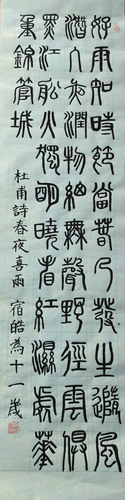 好雨知時節當春乃發生隨風
潛入夜潤物細無聲野徑雲俱
黑江船火獨明曉看紅濕處華
重錦管城
杜甫詩春夜喜雨 宿皓為十一歲